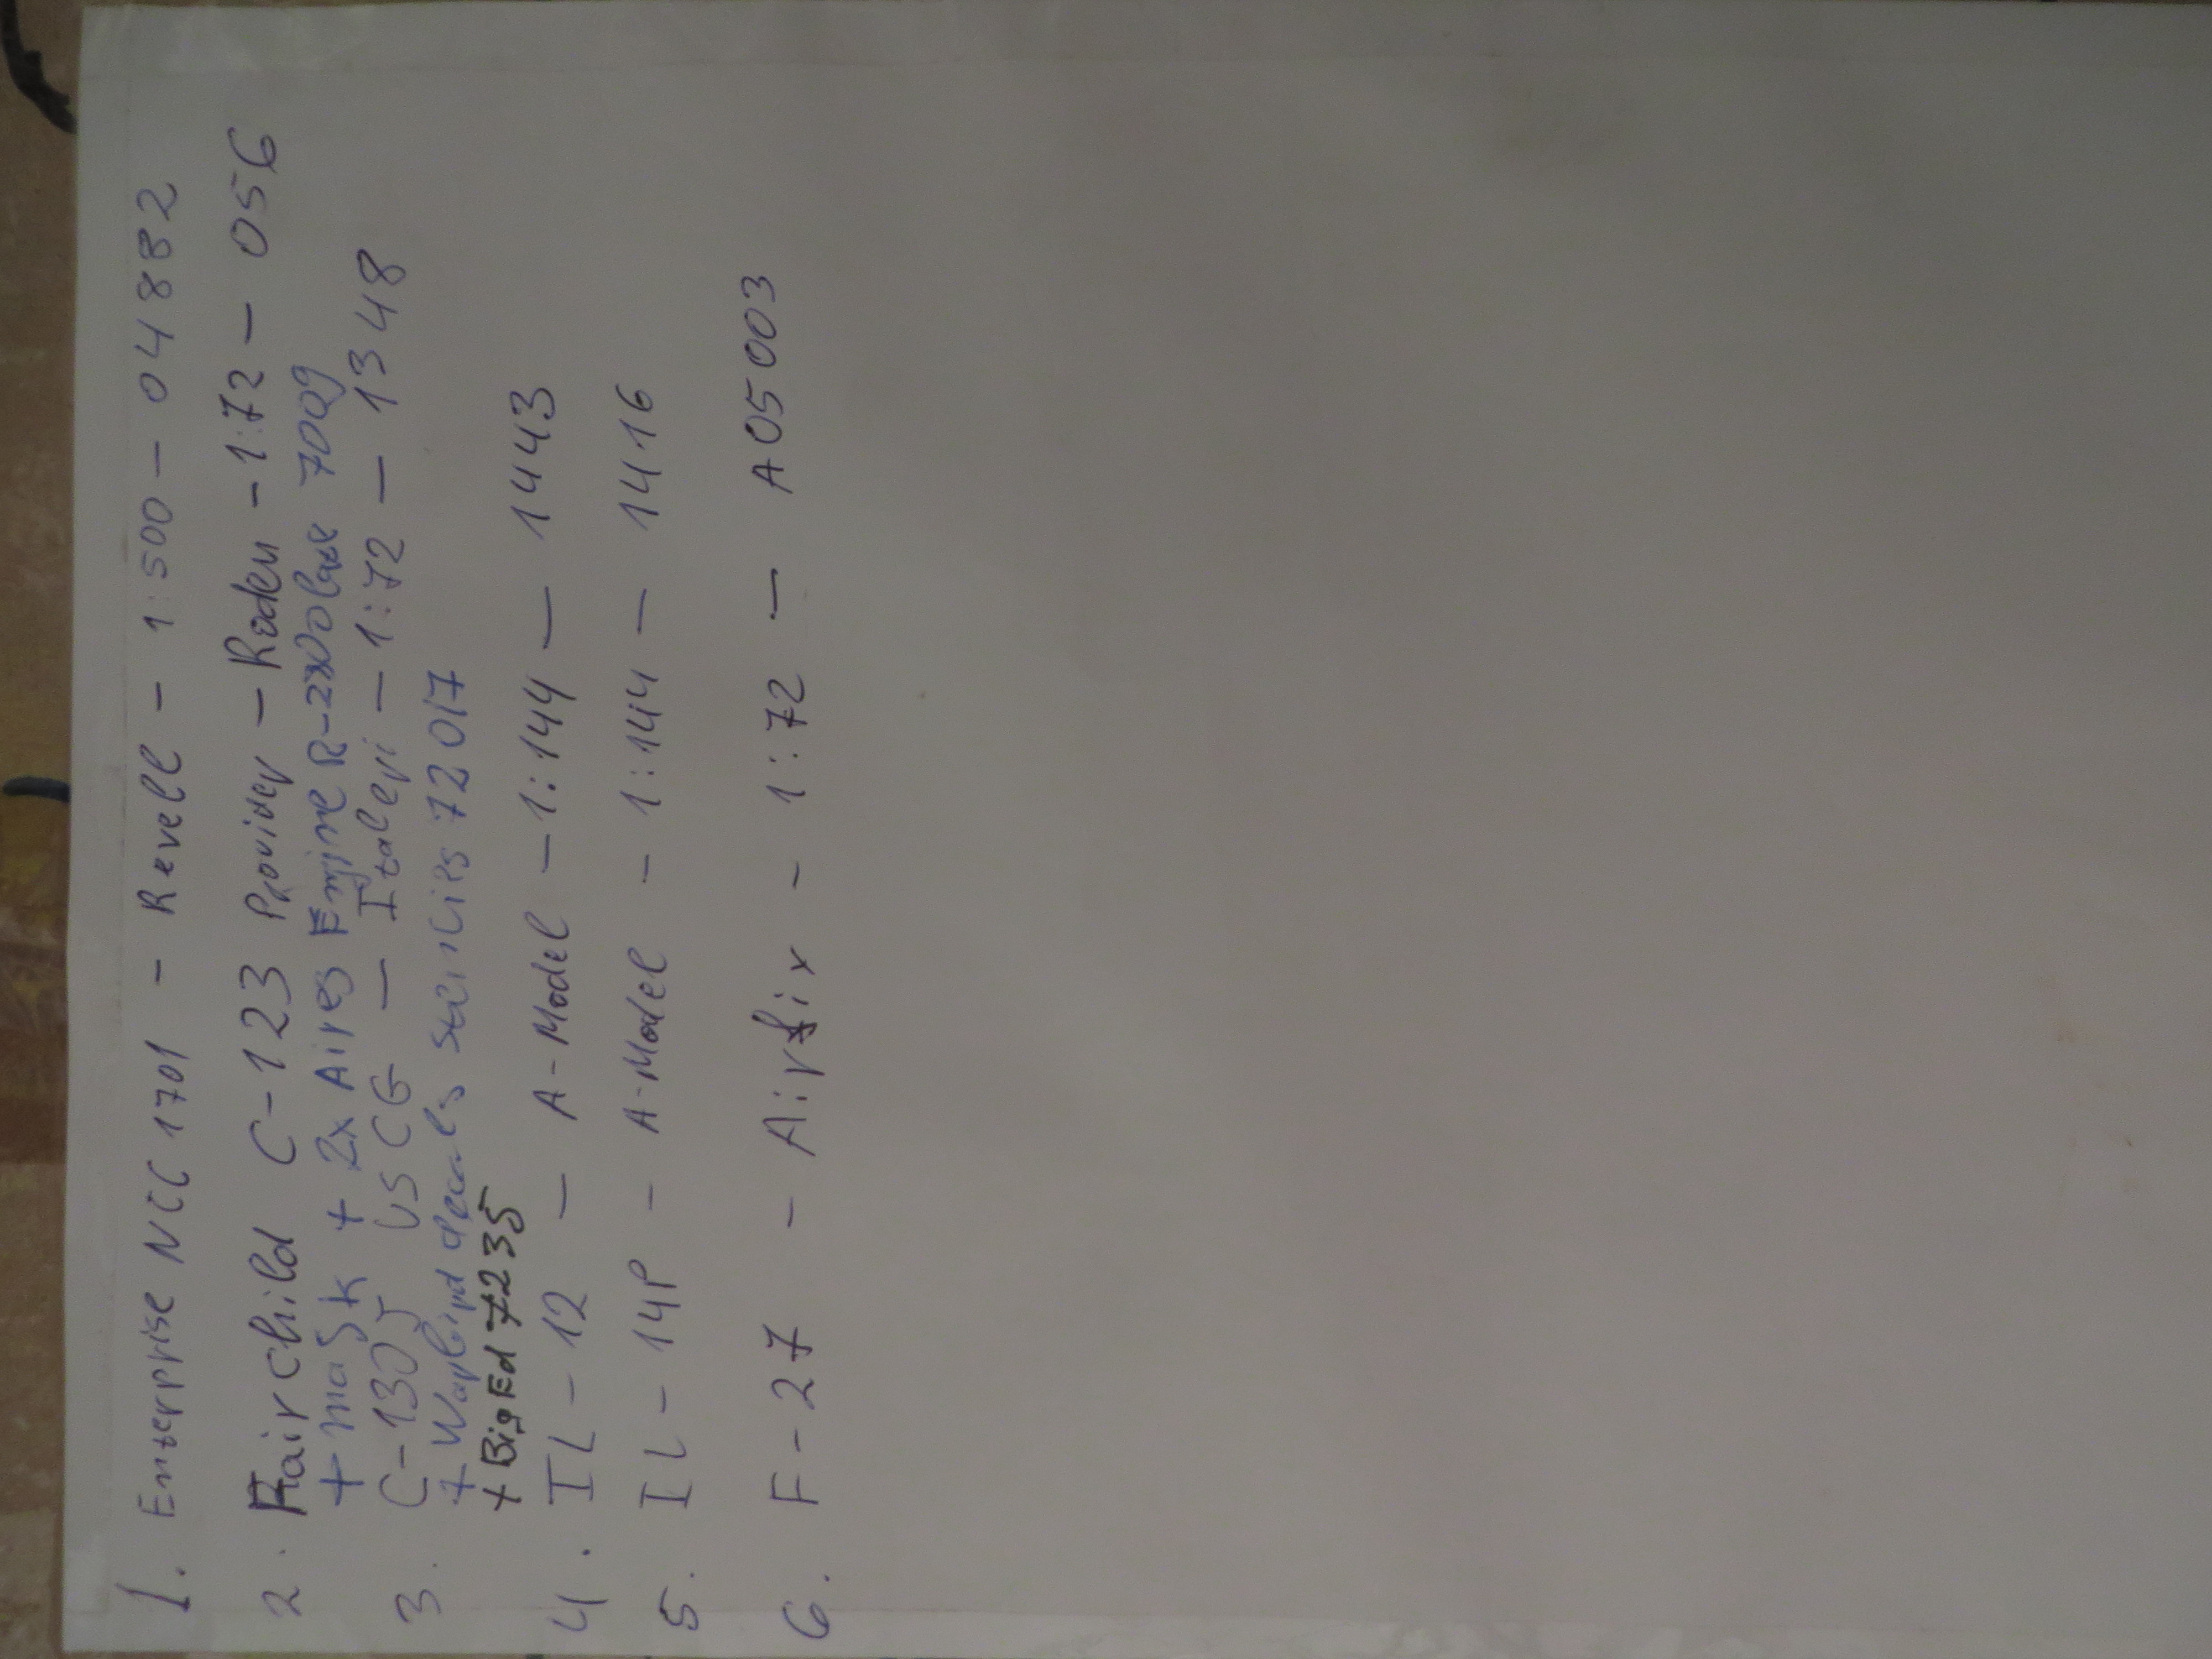 1. Enterprise NCC 1701 - Revell - 1:500 - 04882
2. Fairchild C-123 Provider - Roden - 1:72 - 056
+ mask + 2x Aires Engine R-2800 late 7009
3. C-130J USCG - Italeri - 1:72 - 1348
+ Warbird decals stencils 72017
+ Big Ed 7235
4. IL-12 - A-Model - 1:144 - 1443
5. IL-14P - A-Model - 1:144 - 1416
6. F-27 - Airfix - 1:72 - A05003